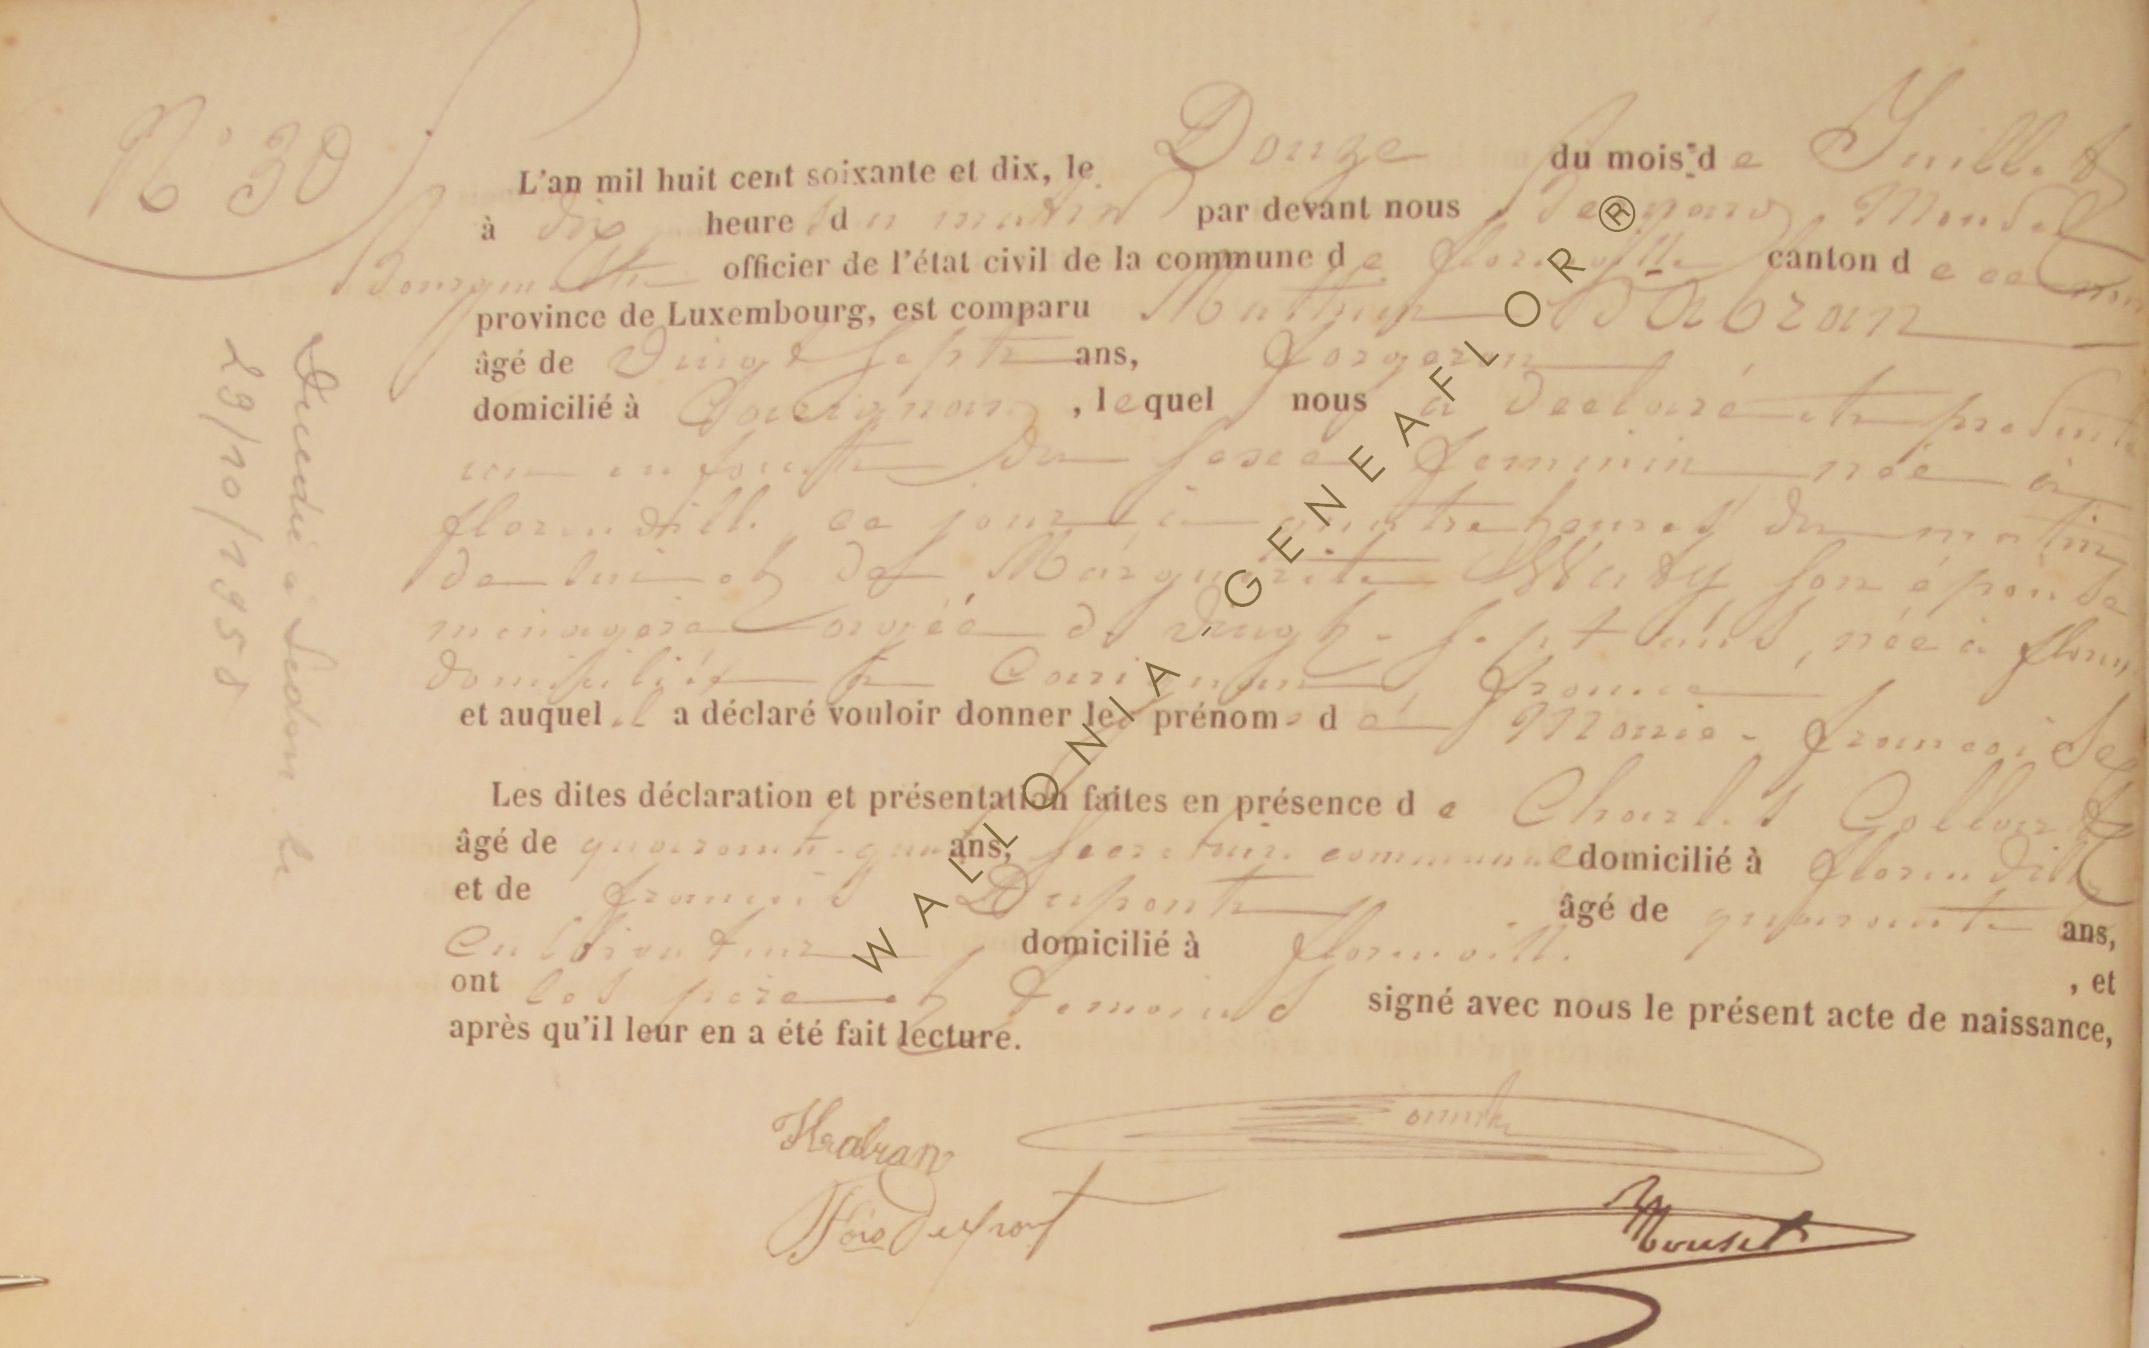 N° 30
L'an mil huit cent soixante et dix, le Douze du mois de Juillet
à dix heure du matin par devant nous Mouset
Bourgmestre officier de l'état civil de la commune de florenville canton de ce nom
province de Luxembourg, est comparu Habran
âgé de vingt sept ans, forgeron
domicilié à Carignan, lequel nous a déclaré et présenté
un enfant du sexe feminin née à
florenville ce jour à quatre heures du matin
de lui et de Marguerite son épouse
menagère agée de vingt-sept ans, née à
domiciliée à Carignan, france
et auquel il a déclaré vouloir donner les prénoms de Marie-françoise
Les dites déclaration et présentation faites en présence de Charles
âgé de ans, secretaire communal domicilié à florenville
et de françois Dupont âgé de quarante ans,
Cultivateur domicilié à florenville, et
ont les père et temoins signé avec nous le présent acte de naissance,
après qu'il leur en a été fait lecture.
Habran
fçois Dupont
Mouset
Décédée à Sedan le
29/10/1958
WALLONIA - GENEAFLOR ®